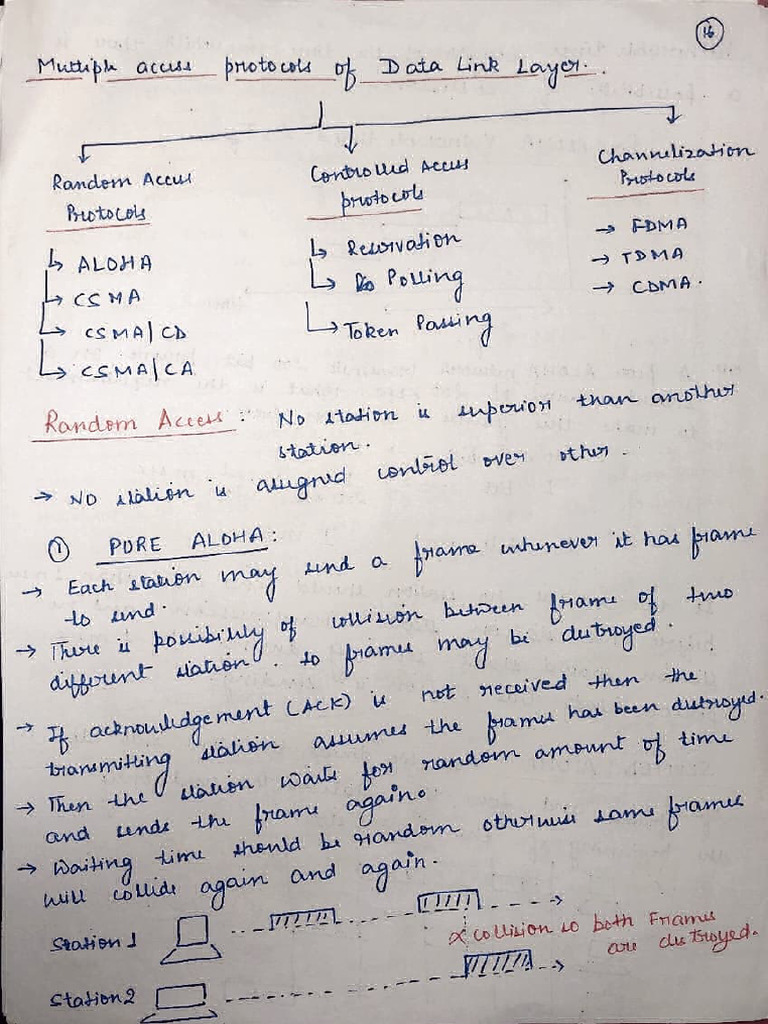 16
Multiple access protocols of Data Link Layer.
Random Access
Protocols
↳ ALOHA
↳ CSMA
↳ CSMA/CD
↳ CSMA/CA
Controlled Access
protocols
↳ Reservation
↳ Polling
↳ Token Passing
Channelization
Protocols
→ FDMA
→ TDMA
→ CDMA.
Random Access: No station is superior than another
station.
→ No station is assigned control over other.
① PURE ALOHA:
→ Each station may send a frame whenever it has frame
to send.
→ There is possibility of collision between frame of two
different station. so frames may be destroyed.
→ If acknowledgement (ACK) is not received then the
transmitting station assumes the frames has been destroyed.
→ Then the station waits for random amount of time
and sends the frame again.
→ Waiting time should be random otherwise same frames
will collide again and again.
Station 1
collision so both Frames
are destroyed.
Station 2